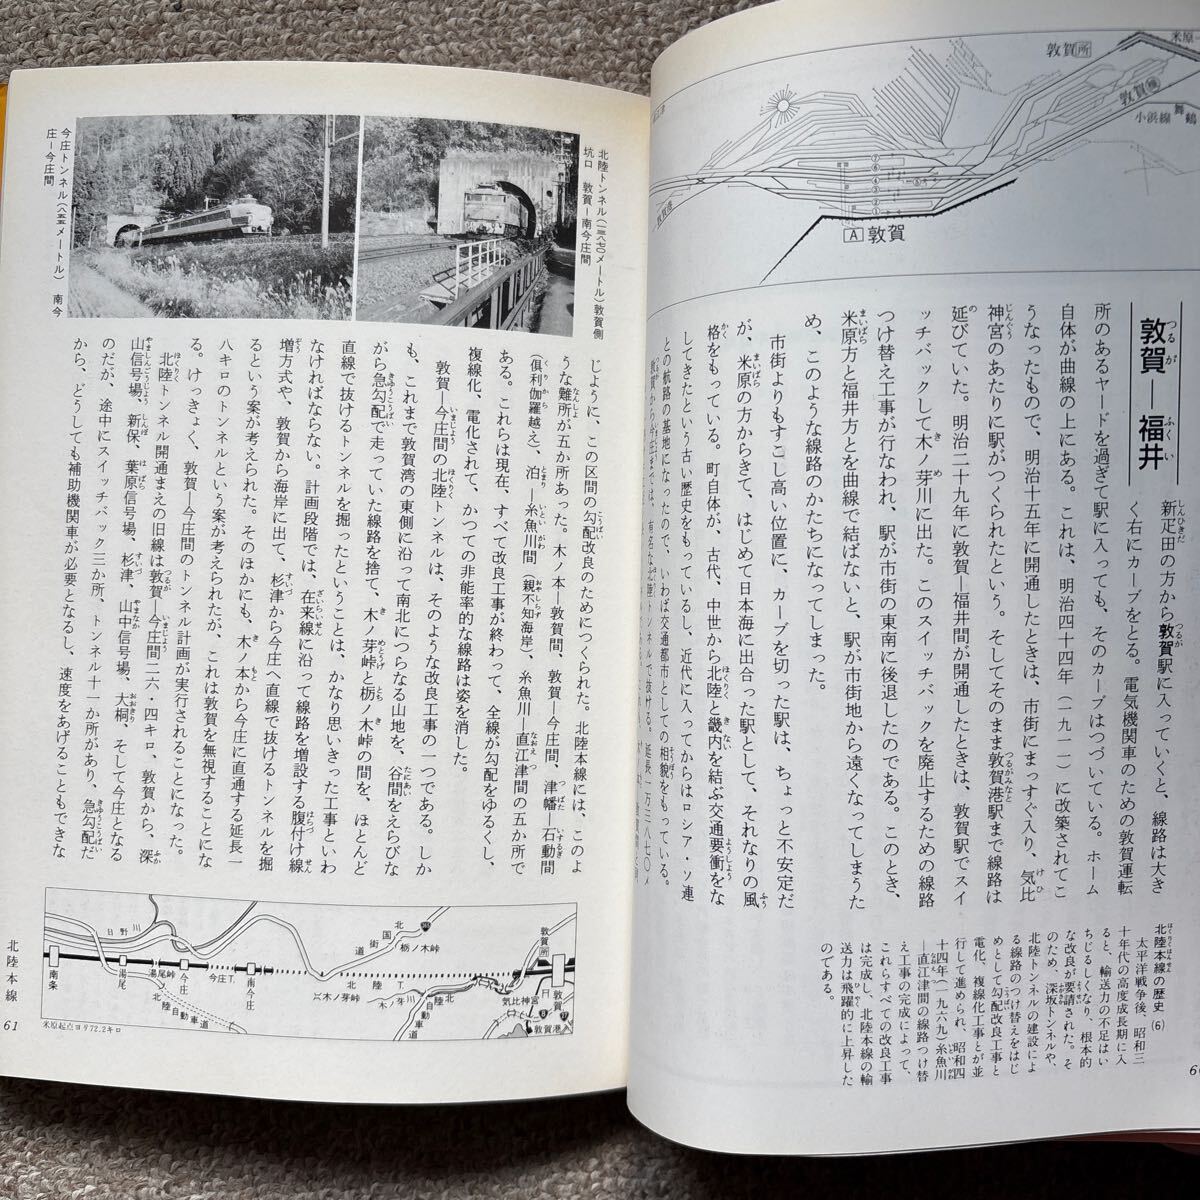 敦賀所
米原
敦賀
舞鶴
小浜線
敦賀
A 敦賀
敦賀―福井
つるが
ふくい
新疋田の方から敦賀駅に入っていくと、線路は大き
く右にカーブをとる。電気機関車のための敦賀運転
所のあるヤードを過ぎて駅に入っても、そのカーブはつづいている。ホーム
自体が曲線の上にある。これは、明治四十四年(一九一一)に改築されてこ
うなったもので、明治十五年に開通したときは、市街にまっすぐ入り、気比
神宮のあたりに駅がつくられたという。そしてそのまま敦賀港駅まで線路は
延びていた。明治二十九年に敦賀―福井間が開通したときは、敦賀駅でスイ
ッチバックして木ノ芽川に出た。このスイッチバックを廃止するための線路
つけ替え工事が行なわれ、駅が市街の東南に後退したのである。このとき、
米原方と福井方とを曲線で結ばないと、駅が市街地から遠くなってしまうた
め、このような線路のかたちになってしまった。
市街よりもすこし高い位置に、カーブを切った駅は、ちょっと不安定だ
が、米原の方からきて、はじめて日本海に出合った駅として、それなりの風
格をもっている。町自体が、古代、中世から北陸と畿内を結ぶ交通要衝をな
してきたという古い歴史をもっているし、近代に入ってからはロシア・ソ連
との航路の基地になったので、いわば交通都市としての相貌をもっている。
北陸本線の歴史(6)
太平洋戦争後、昭和三
十年代の高度成長期に入
ると、輸送力の不足はい
ちじるしくなり、根本的
な改良が要請された。そ
のため、深坂トンネルや、
北陸トンネルの建設によ
る線路のつけ替えをはじ
めとして勾配改良工事と
電化、複線化工事とが並
行して進められ、昭和四
十四年(一九六九)糸魚川
―直江津間の線路つけ替
え工事の完成によって、
これらすべての改良工事
は完成し、北陸本線の輸
送力は飛躍的に上昇した
のである。
北陸トンネル(一三八七〇メートル)敦賀側
坑口 敦賀―南今庄間
今庄トンネル(八五五メートル) 南今
庄―今庄間
じように、この区間の勾配改良のためにつくられた。北陸本線には、このよ
うな難所が五か所あった。木ノ本―敦賀間、敦賀―今庄間、津幡―石動間
(倶利伽羅越え)、泊―糸魚川間(親不知海岸)、糸魚川―直江津間の五か所で
ある。これらは現在、すべて改良工事が終わって、全線が勾配をゆるくし、
複線化、電化されて、かつての非能率的な線路は姿を消した。
敦賀―今庄間の北陸トンネルは、そのような改良工事の一つである。しか
も、これまで敦賀湾の東側に沿って南北につらなる山地を、谷間をえらびな
がら急勾配で走っていた線路を捨て、木ノ芽峠と栃ノ木峠の間を、ほとんど
直線で抜けるトンネルを掘ったということは、かなり思いきった工事といわ
なければならない。計画段階では、在来線に沿って線路を増設する腹付け線
増方式や、敦賀から海岸に出て、杉津から今庄へ直線で抜けるトンネルを掘
るという案が考えられた。そのほかにも、木ノ本から今庄に直通する延長一
八キロのトンネルという案が考えられたが、これは敦賀を無視することにな
る。けっきょく、敦賀―今庄間のトンネル計画が実行されることになった。
北陸トンネル開通まえの旧線は敦賀―今庄間二六・四キロ、敦賀から、深
山信号場、新保、葉原信号場、杉津、山中信号場、大桐、そして今庄となる
のだが、途中にスイッチバック三か所、トンネル十一か所があり、急勾配だ
から、どうしても補助機関車が必要となるし、速度をあげることもできな
日野川
南条
湯尾
湯尾峠
今庄
今庄T.
南今庄
北陸自動車道
北国街道
栃ノ木峠
北陸T.
木ノ芽峠
木ノ芽川
北陸自動車道
敦賀所
気比神宮
敦賀港
8
27
米原起点ヨリ72.2キロ
北陸本線
61